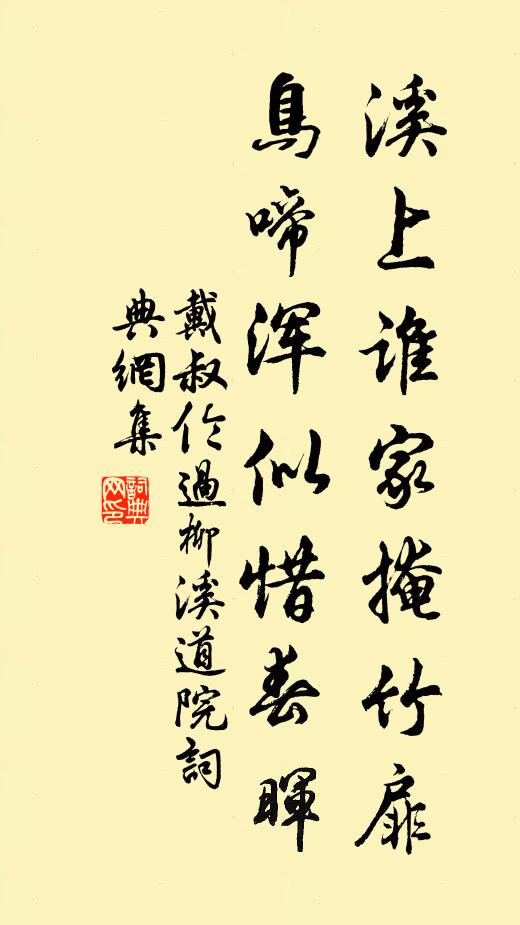 溪上谁家掩竹扉
鳥啼浑似惜春暉
戴叔伦過柳溪道院詞
典網集
詞典网印